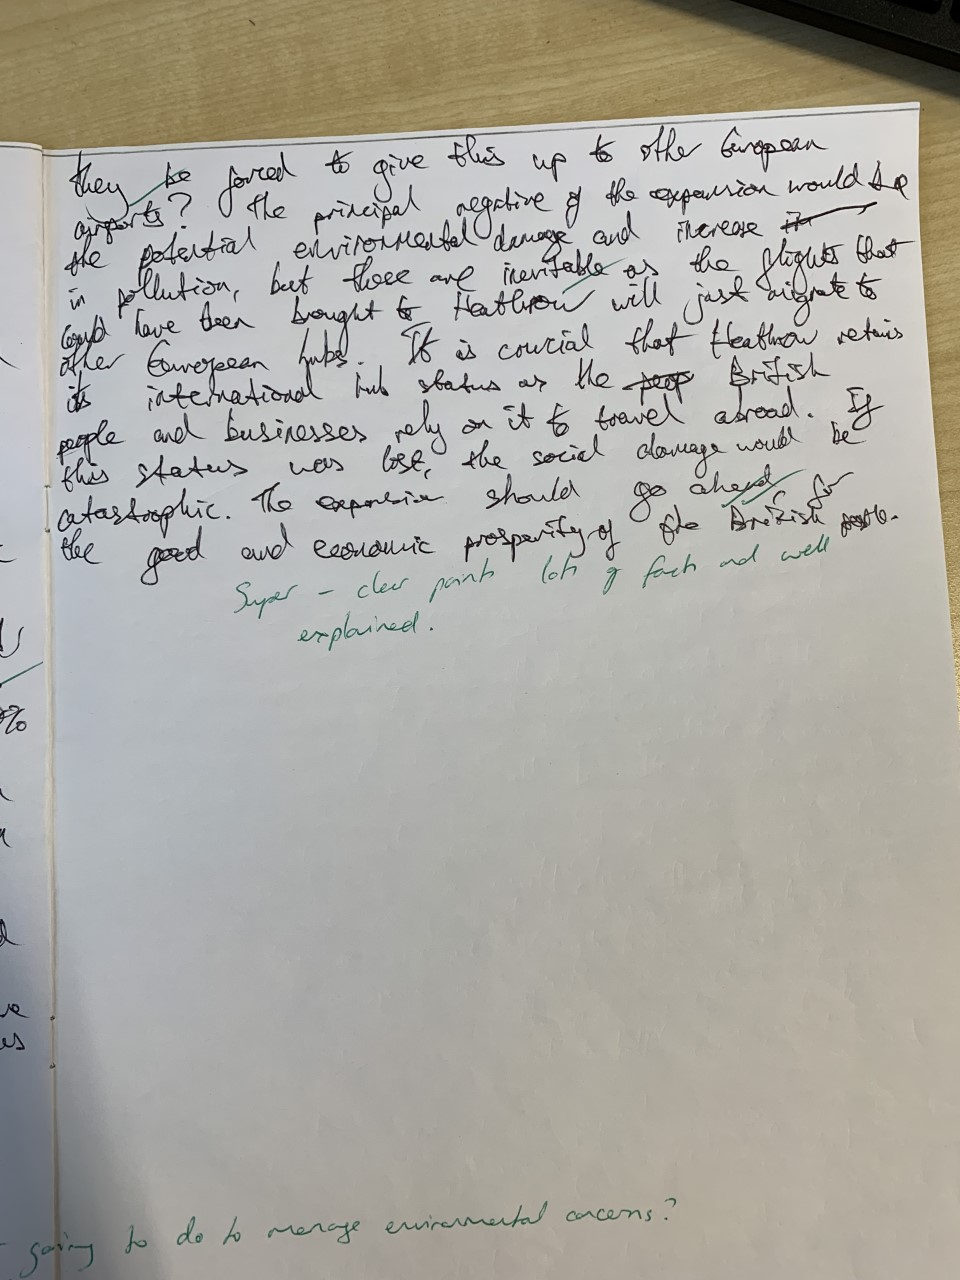 they be forced to give this up to other European
airports? The principal negative of the expansion would be
the potential environmental damage and increase
in pollution, but these are inevitable as the flights that
could have been brought to Heathrow will just migrate to
other European hubs. It is crucial that Heathrow retains
its international hub status as the British
people and businesses rely on it to travel abroad. If
this status was lost, the social damage would be
catastrophic. The expansion should go ahead for
the good and economic prosperity of the British
Super - clear points lots of facts and well
explained.
going to do to manage environmental concerns?